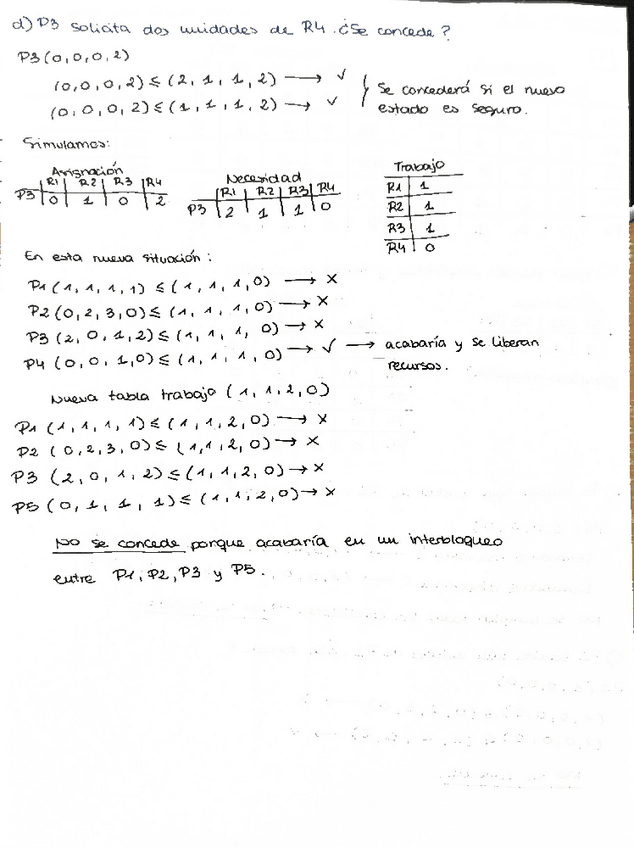 d) P3 solicita dos unidades de R4. ¿Se concede?
P3 (0,0,0,2)
(0,0,0,2) ≤ (2,1,1,2) → ✓
(0,0,0,2) ≤ (1,1,1,2) → ✓
} Se concederá si el nuevo
estado es seguro.
Simulamos:
Asignación
R1 R2 R3 R4
P3 0 1 0 2
Necesidad
R1 R2 R3 R4
P3 2 1 1 0
Trabajo
R1 1
R2 1
R3 1
R4 0
En esta nueva situación:
P1 (1,1,1,1) ≤ (1,1,1,0) → X
P2 (0,2,3,0) ≤ (1,1,1,0) → X
P3 (2,0,1,2) ≤ (1,1,1,0) → X
P4 (0,0,1,0) ≤ (1,1,1,0) → ✓ → acabaría y se liberan
recursos.
Nueva tabla trabajo (1,1,2,0)
P1 (1,1,1,1) ≤ (1,1,2,0) → X
P2 (0,2,3,0) ≤ (1,1,2,0) → X
P3 (2,0,1,2) ≤ (1,1,2,0) → X
P5 (0,1,1,1) ≤ (1,1,2,0) → X
No se concede porque acabaría en un interbloqueo
entre P1, P2, P3 y P5.